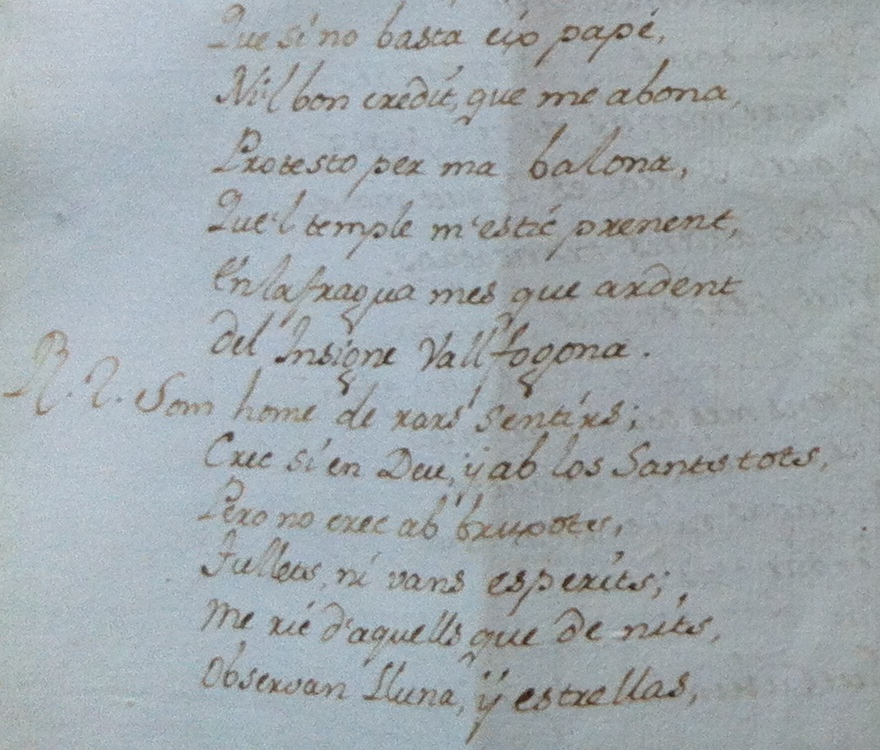 Que si no basta eix papé,
Ni'l bon credit, que me abona,
Protesto per ma balona,
Que'l temple m'estic prenent,
En la fragua mes que ardent
del Insigne Vallfogona.
R. 2. Som home de rars sentirs;
Crec si en Deu, ÿ ab los Sants tots,
Pero no crec ab bruxots,
Fullets, ni vans esperits;
Me ric d'aquells que de nits,
Observan Lluna, ÿ estrellas,